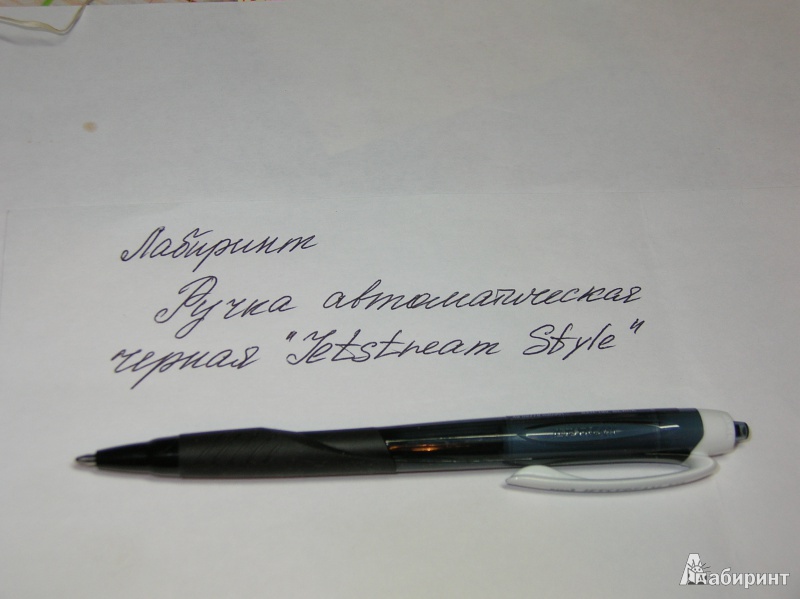 Лабиринт
Ручка автоматическая
черная "Jetstream Style"
Лабиринт